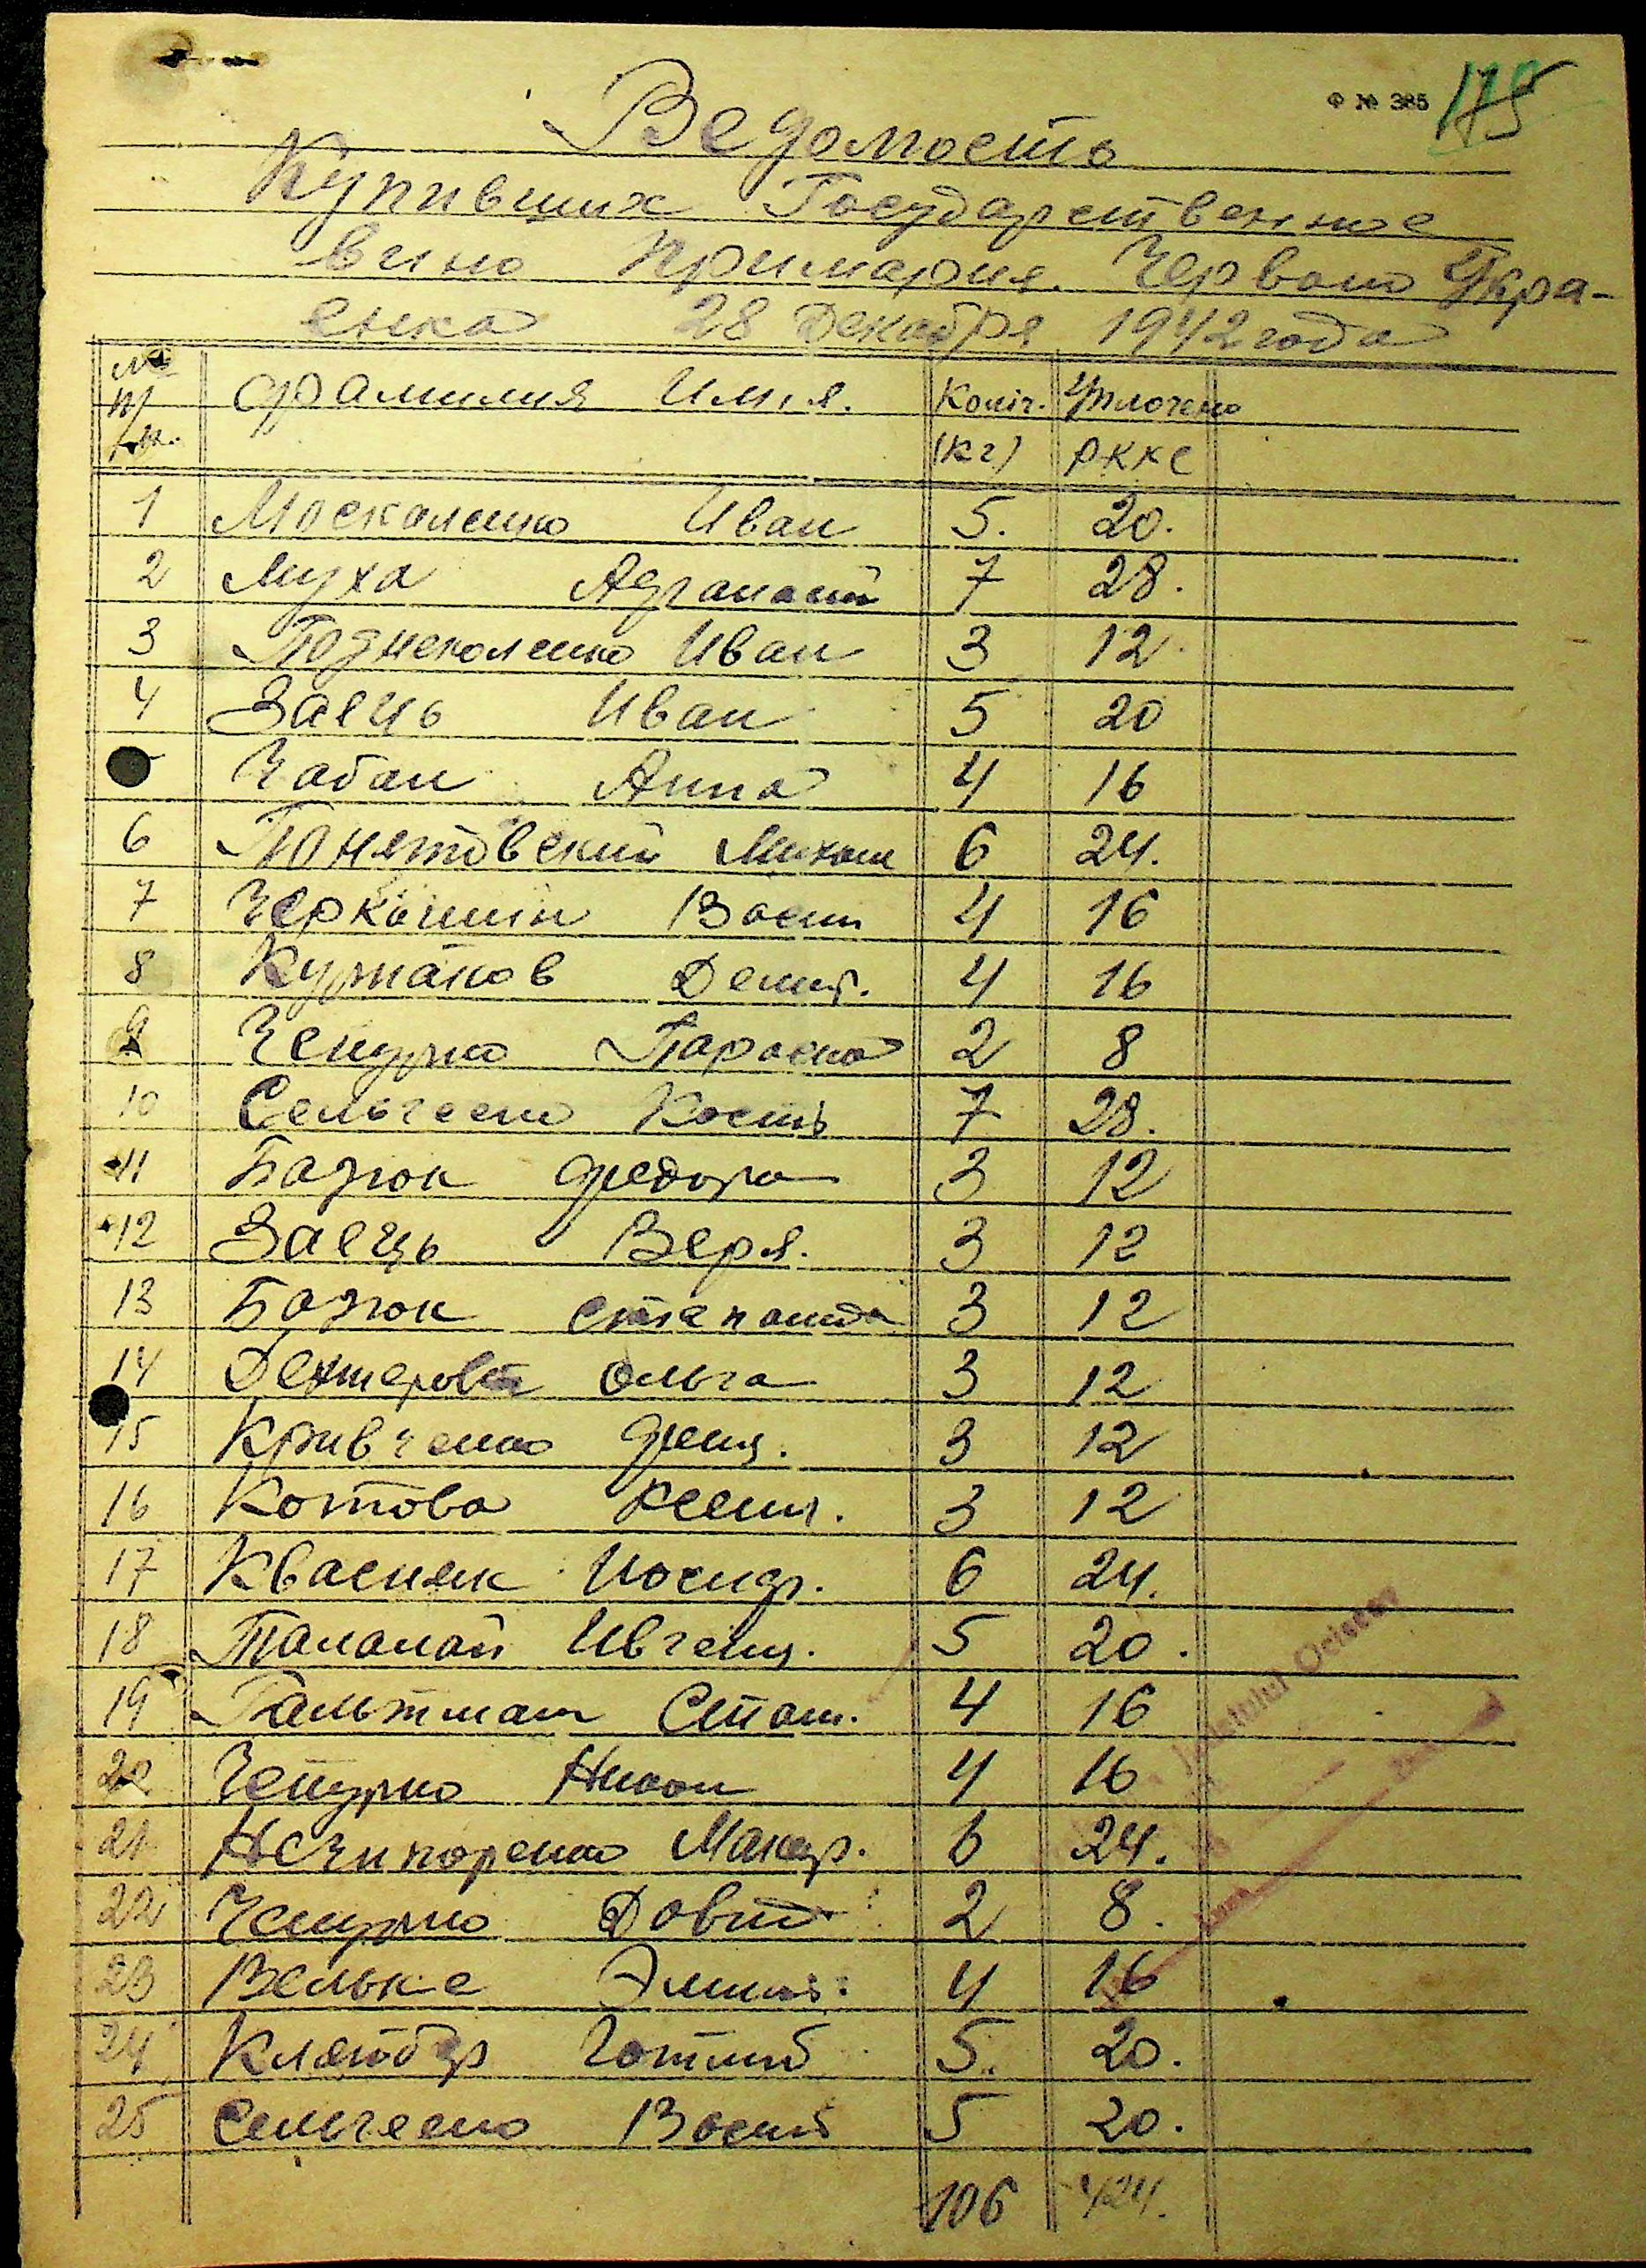 Ф № 385 175
Ведомость
Купивших Государственное
вино Примария Червона Укра-
енка 28 Декабря 1942 года
№ п/п. Фамилия Имя. Коліч. (кг) Уплочено РККС
1 Москаленко Иван 5. 20.
2 Муха Афанасий 7 28.
3 Иван 3 12.
4 Заець Иван 5 20
Чабан Анна 4 16
6 Понятовский Михаил 6 24.
7 Васил 4 16
8 Курташов Демит. 4 16
9 Чепурко Параска 2 8
10 Сельгеенко Кость 7 28.
11 Базюк Федора 3 12
12 Заець Вера. 3 12
13 Базюк Степанида 3 12
14 Ольга 3 12
15 Кривченко Феня. 3 12
16 Котова Ксеня. 3 12
17 Квасняк Иосиф. 6 24.
18 Таламай Ивгения. 5 20.
19 Гальтман Степан. 4 16
20 Чепурко Никон 4 16
21 Нечипоренко Макар. 6 24.
22 Чепурко Довид 2 8.
23 Вельке Эмиль: 4 16
24 Клятбер Готлиб 5. 20.
25 Сельгеенко Васил 5 20.
106 424.